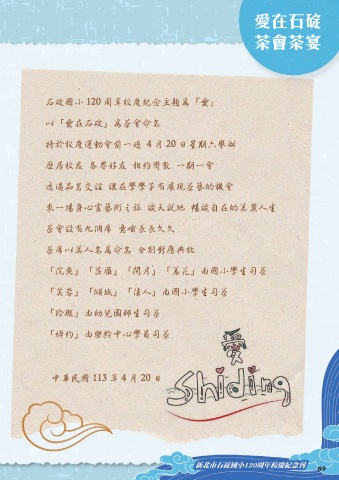 愛在石碇
茶會茶宴
石碇國小120周年校慶紀念主題為「愛」
以「愛在石碇」為茶會命名
特於校慶運動會前一週 4月20日星期六舉辦
歷屆校友 各界好友 相約齊聚 一期一會
透過品茗交誼 讓在學學子有展現茶藝的機會
來一場身心靈藝術之旅 談天說地 暢談自在的美麗人生
茶會設有九個席 意喻長長久久
茶席以美人名為命名 分別對應典故
「沉魚」「落雁」「閉月」「羞花」由國小學生司茶
「芙蓉」「傾城」「佳人」由國中學生司茶
「玲瓏」由幼兒園師生司茶
「綽約」由樂齡中心學員司茶
中華民國113年4月20日
愛
Shiding
新北市石碇國小120周年校慶紀念刊
69